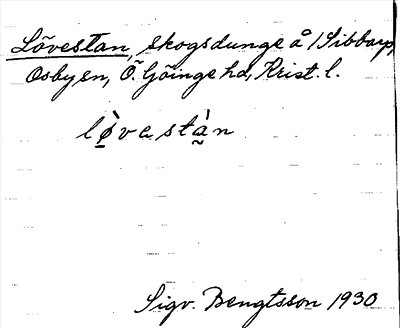 Lövestan, skogsdunge å /Sibbarp,
Osby sn, Ö. Göinge hd, Krist. l.
lø̀vastàn
Sigv. Bengtsson 1930